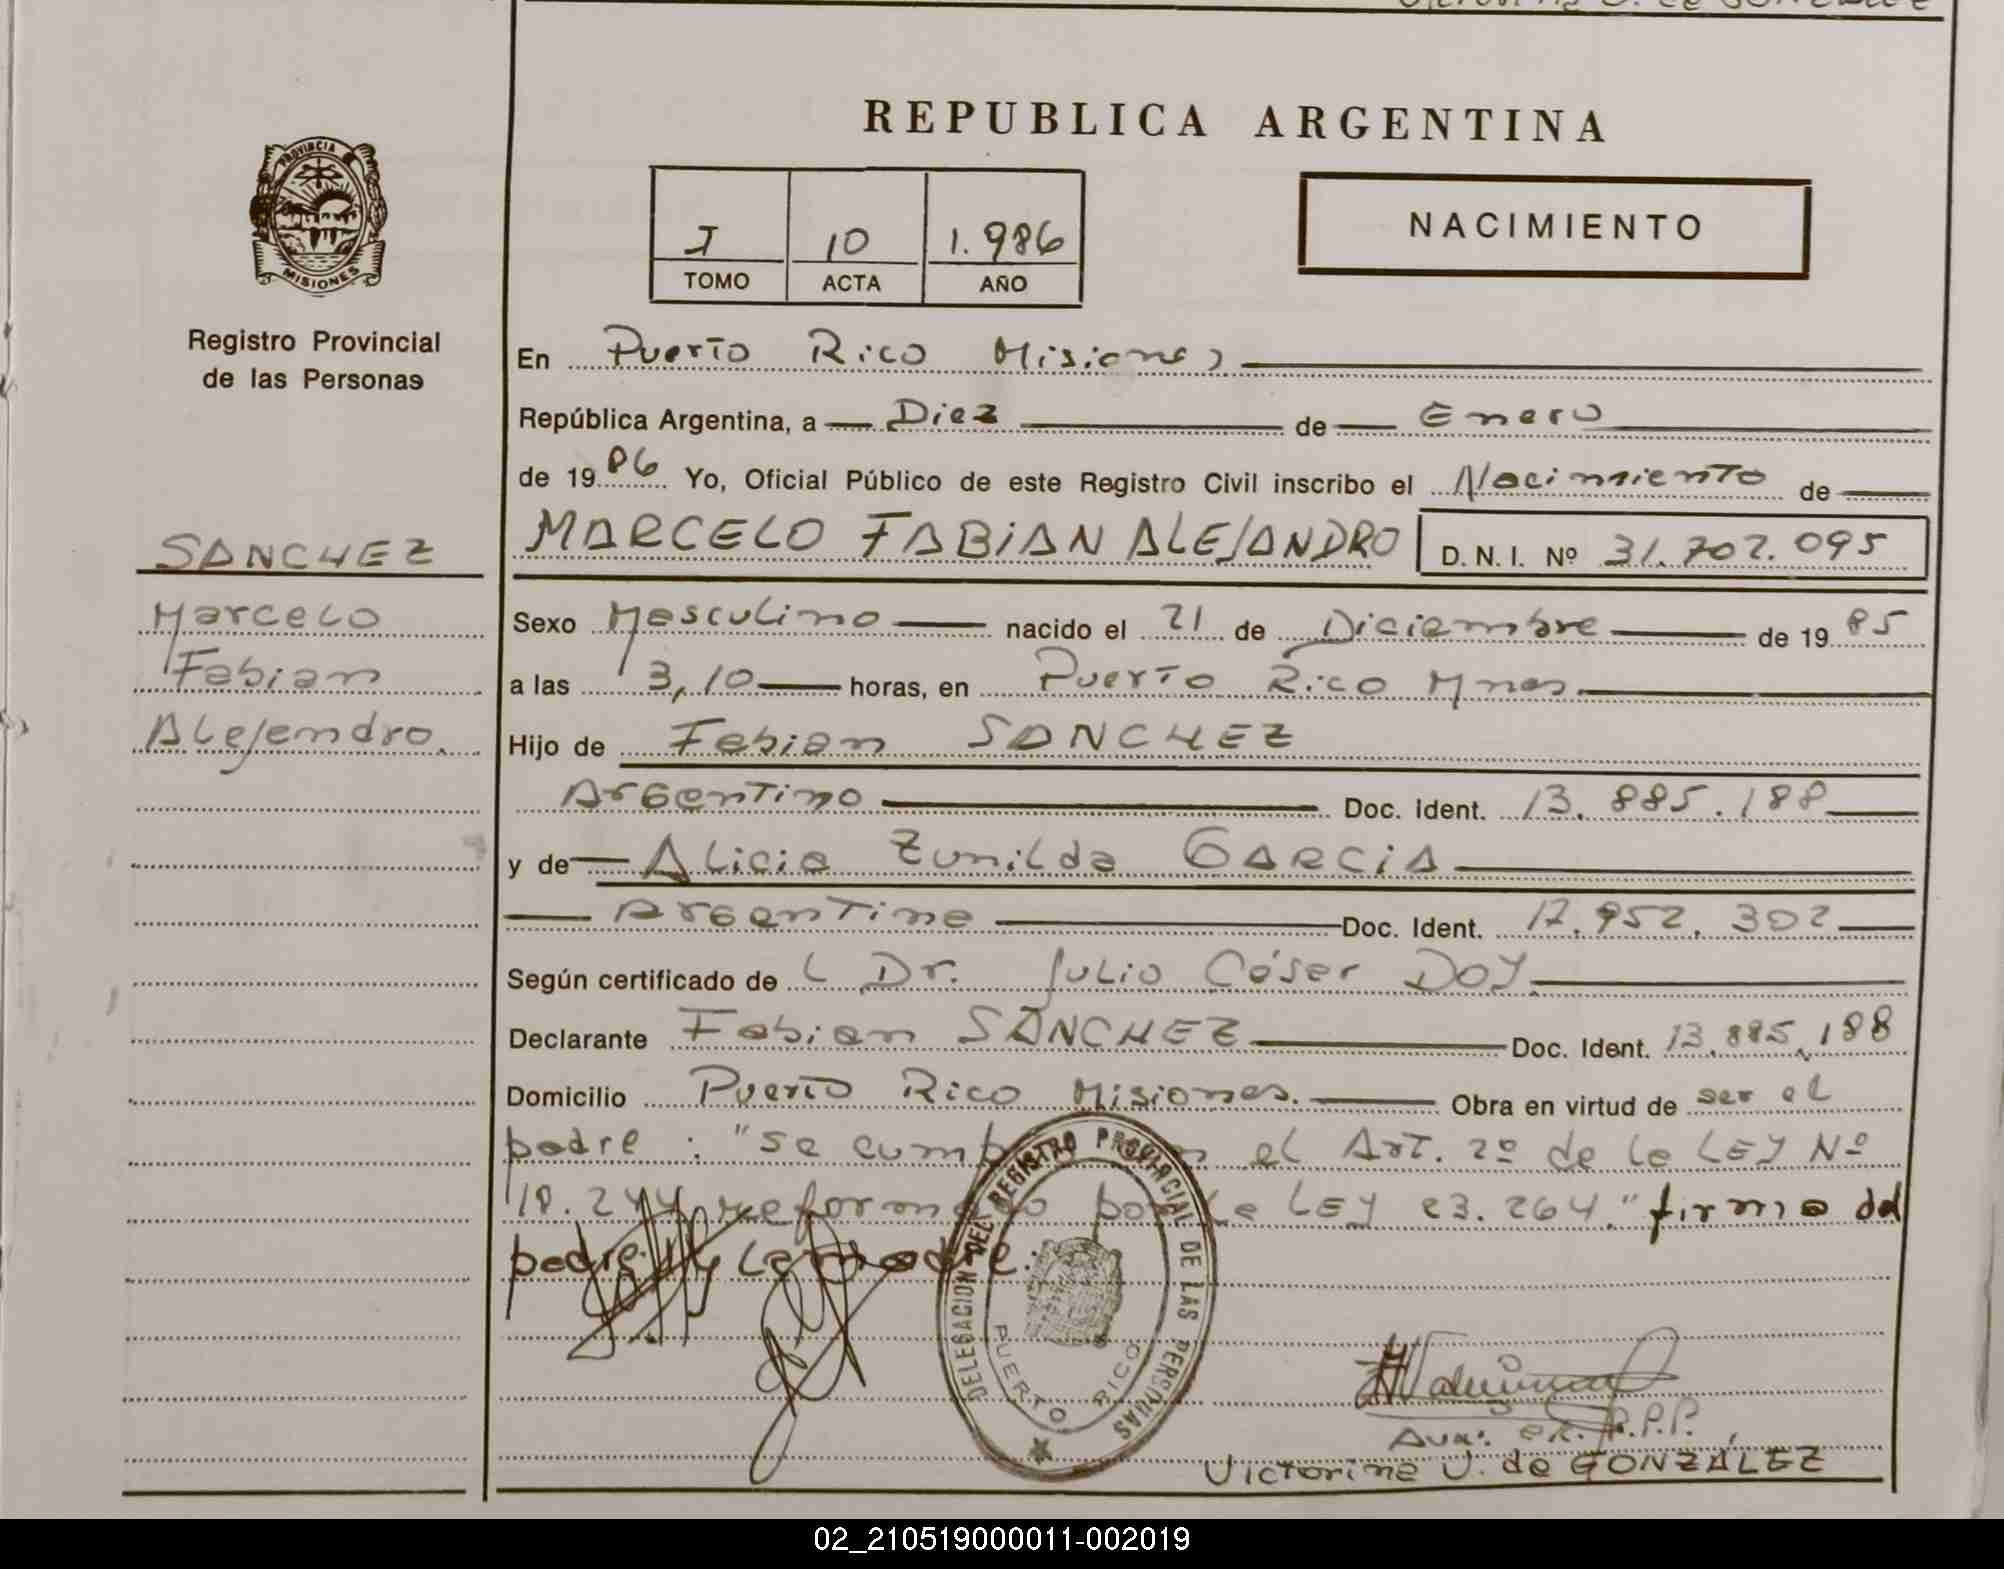 REPUBLICA ARGENTINA
PROVINCIA
MISIONES
Registro Provincial
de las Personas
I 10 1.986
TOMO ACTA AÑO
NACIMIENTO
En Puerto Rico Misiones
República Argentina, a Diez de Enero
de 1986 Yo, Oficial Público de este Registro Civil inscribo el Nacimiento de
SANCHEZ
Marcelo
Fabian
Alejandro.
MARCELO FABIAN ALEJANDRO D.N.I. Nº 31.702.095
Sexo Masculino nacido el 21 de Diciembre de 1985
a las 3,10 horas, en Puerto Rico Mnes
Hijo de Fabian SANCHEZ
Argentino Doc. Ident. 13.885.188
y de Alicia Zunilda GARCIA
Argentina Doc. Ident. 17.952.302
Según certificado de L Dr. Julio César DOY
Declarante Fabian SANCHEZ Doc. Ident. 13.885.188
Domicilio Puerto Rico Misiones. Obra en virtud de ser el
padre : "se el Art. 2º de la LEY Nº
18.244 reformado por la LEY 23.264." firma del
padre y la madre:
DELEGACION DEL REGISTRO PROVINCIAL DE LAS PERSONAS
PUERTO RICO
Aux. R.P.P.
Victorina U. de GONZALEZ
02_210519000011-002019